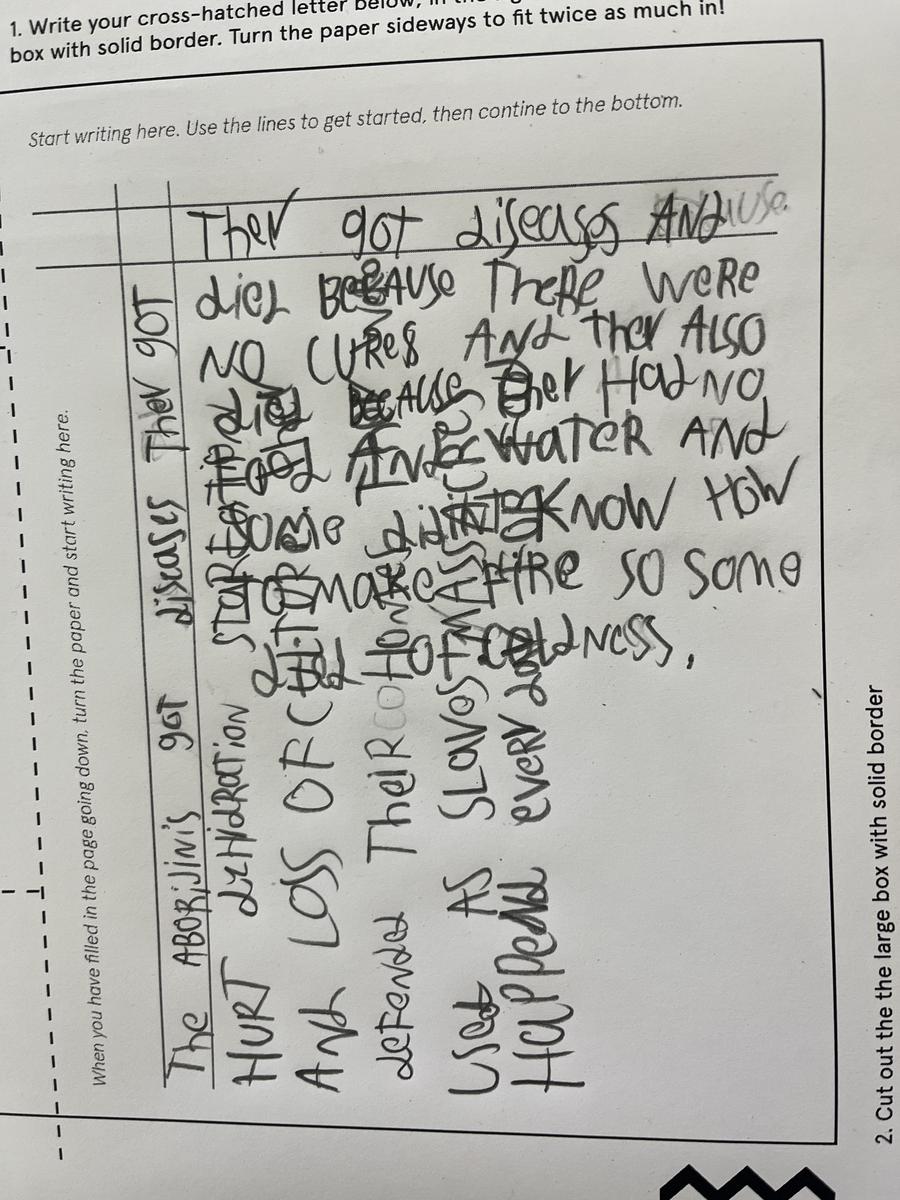 1. Write your cross-hatched letter below, in the
box with solid border. Turn the paper sideways to fit twice as much in!
Start writing here. Use the lines to get started, then contine to the bottom.
TheY got diseases AND
died BECAUSE THeRe WeRe
NO CURES AND they ALSO
died BECAUSE they Had NO
food AND WATER AND
some didNT KNOW HOW
TO Make FIRe SO Some
died OF coldNess,
When you have filled in the page going down, turn the paper and start writing here.
The ABORiJiNiS got diseases They got
HURT deHidRaTioN STARVATION
AND LOSS OF CULTURe
defended TheiR
Used AS SLaves MASSACRe
Happend every day
2. Cut out the the large box with solid border